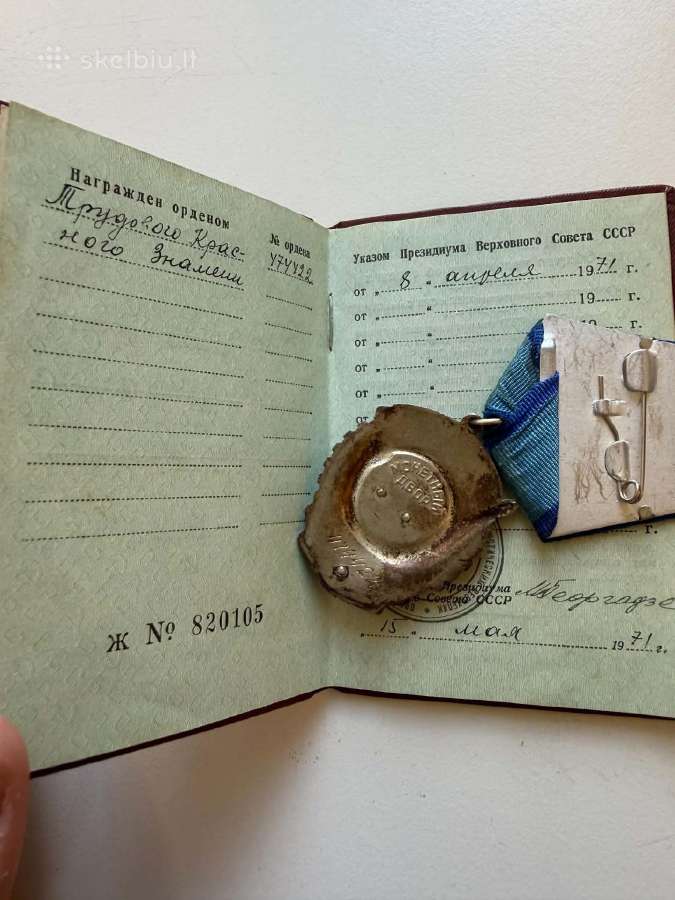 skelbiu.lt
Награжден орденом
№ ордена
Трудового Крас-
ного Знамени
474422
Ж № 820105
Указом Президиума Верховного Совета СССР
от „ 8 “ апреля 1971 г.
от „ “ 19 г.
от „ “ 19 г.
от „ “
от „ “
от „
МОНЕТНЫЙ
ДВОР
Президиума
Совета СССР
М Георгадзе
„ 15 “ мая 1971 г.